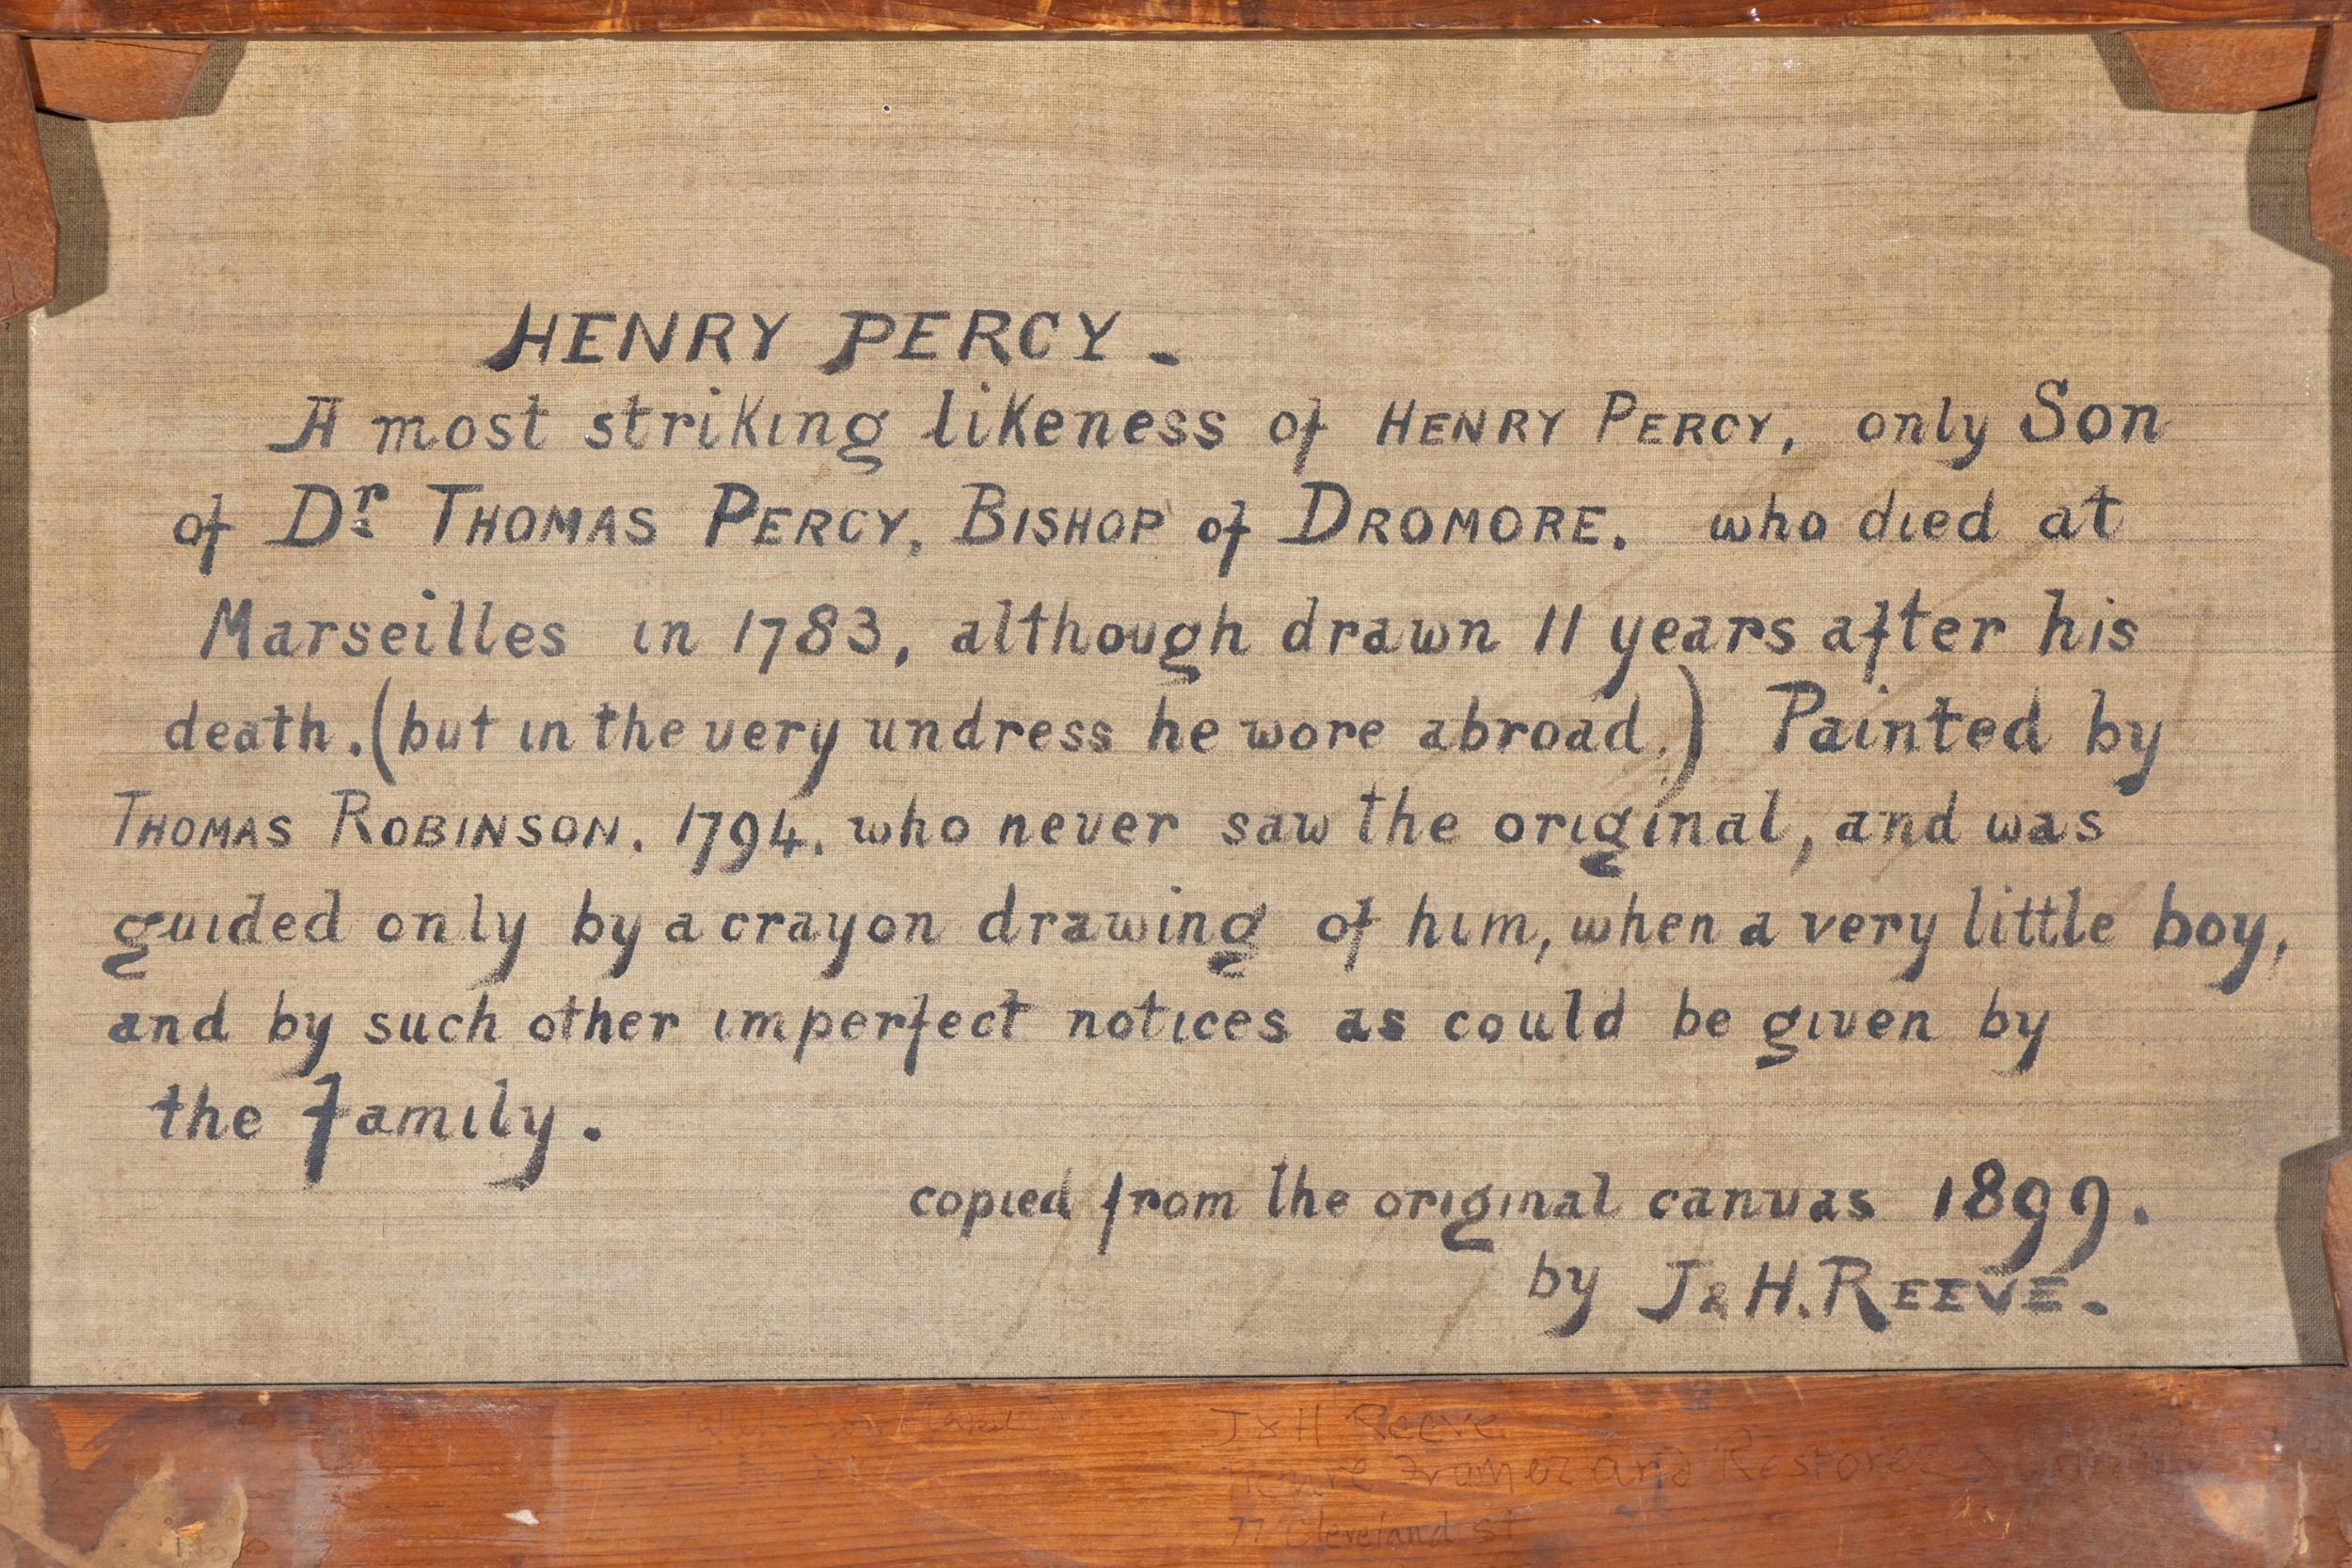 HENRY PERCY.
A most striking likeness of HENRY PERCY, only Son
of Dr THOMAS PERCY, BISHOP of DROMORE. who died at
Marseilles in 1783, although drawn 11 years after his
death. (but in the very undress he wore abroad.) Painted by
THOMAS ROBINSON. 1794. who never saw the original, and was
guided only by a crayon drawing of him, when a very little boy,
and by such other imperfect notices as could be given by
the Family.
copied from the original canvas 1899.
by J & H. REEVE.
J & H Reeve
Picture Framer and Restorer
77 Cleveland St